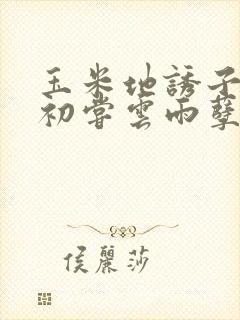 玉米地誘子
初嘗雲雨孽
侯麗莎